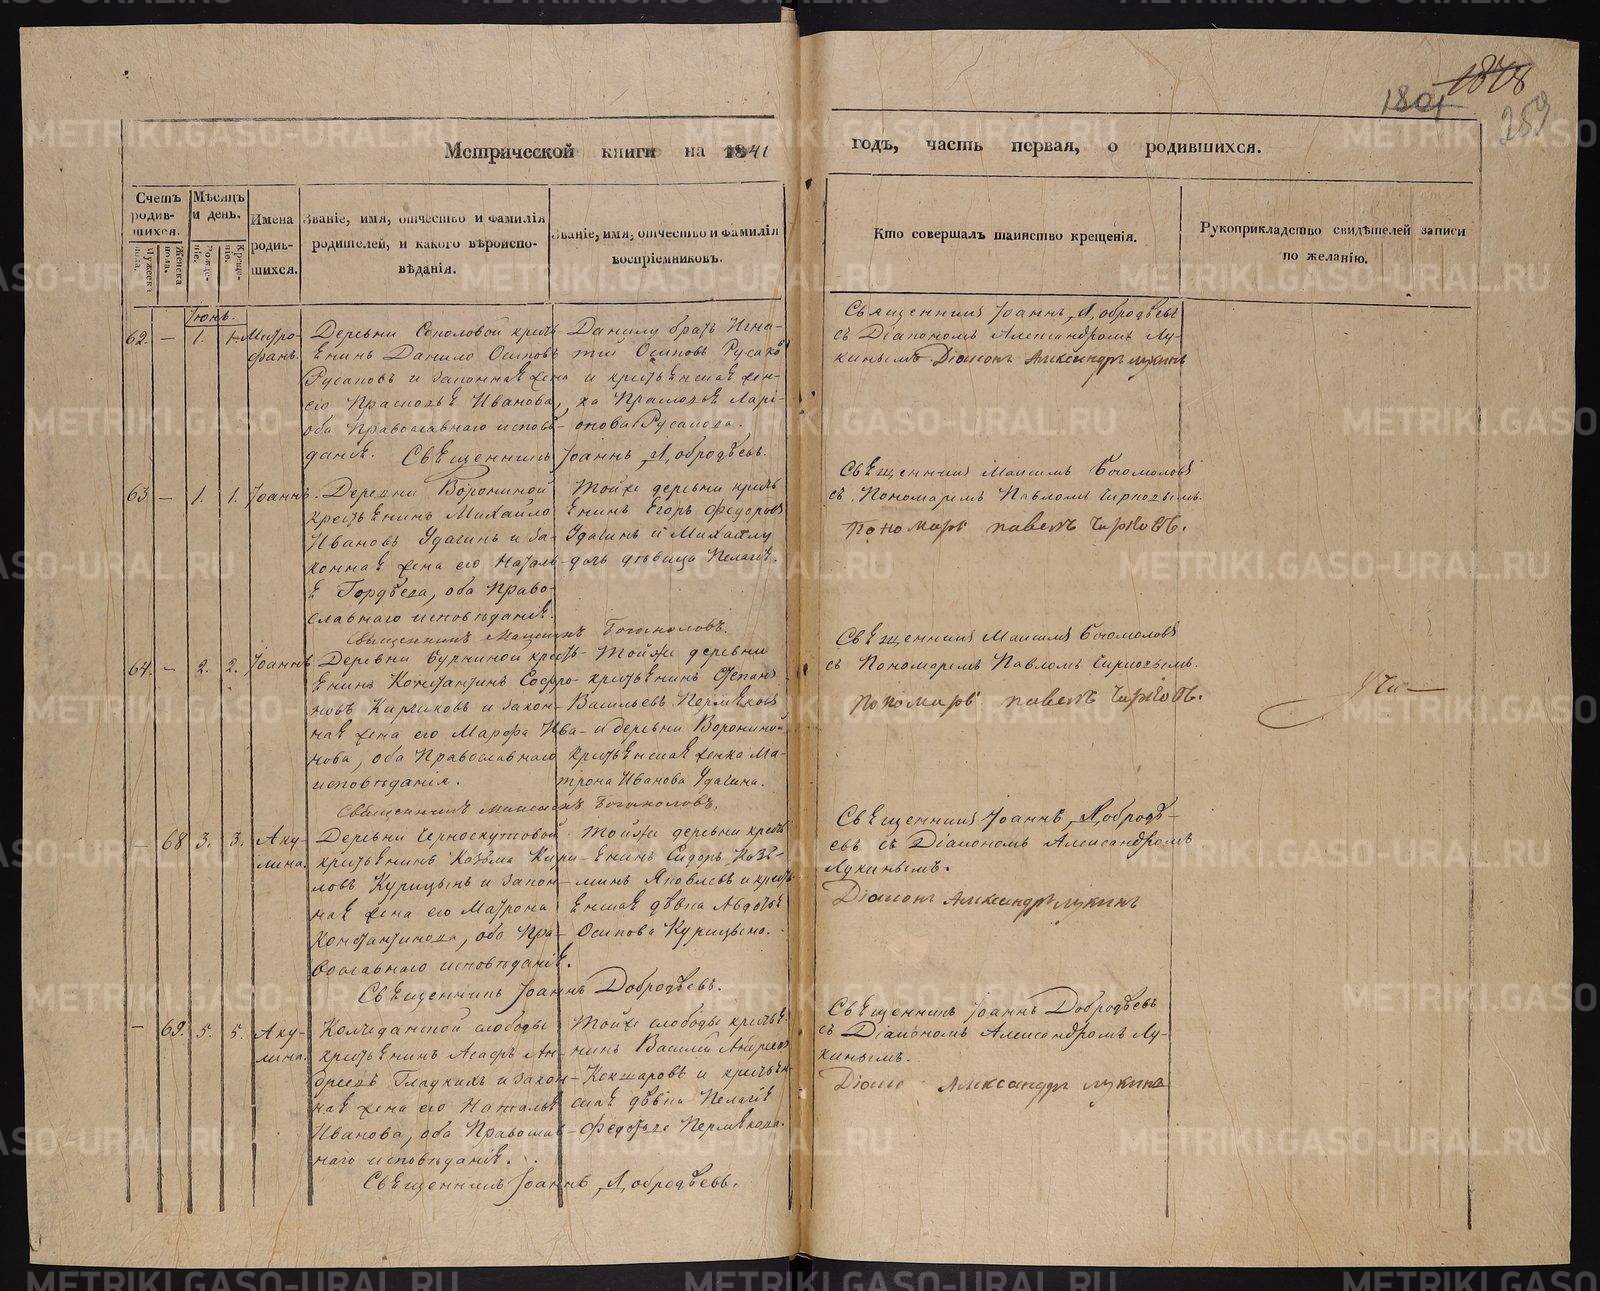 1878
1801
259
Метрической книги на 1841
годъ, часть первая, о родившихся.
Счетъ родив-шихся.
Мужеска пола.
Женска пола.
Мѣсяцъ и день.
Рожде-нія.
Креще-нія.
Имена родив-шихся.
Званіе, имя, отчество и фамилія
родителей, и какого вѣроиспо-
вѣданія.
Званіе, имя, отчество и фамилія
воспріемниковъ.
Кто совершалъ таинство крещенія.
Рукоприкладство свидѣтелей записи
по желанію.
Іюнь.
62 — 1. 1. Митро-
фанъ.
Деревни Соколовой кресть-
янинъ Данило Осиповъ
Русаковъ и законная жена
его Прасковья Иванова,
оба православнаго исповѣ-
данія.
Данилу братъ Игна-
тій Осиповъ Русаковъ
и крестьянская жен-
ка Прасковья Ларі-
онова Русакова.
Священникъ Іоаннъ Добродѣевъ.
Священникъ Іоаннъ Добродѣевъ
съ Діакономъ Александромъ Лу-
кинымъ. Діаконъ Александръ Лукинъ
63 — 1. 1. Іоаннъ.
Деревни Ворониной
крестьянинъ Михайло
Ивановъ Удагинъ и за-
конная жена его Наталь-
я Гордѣева, оба право-
славнаго исповѣданія.
Тойже деревни кресть-
янинъ Егоръ Федоровъ
Удагинъ и Михайлу
дочь дѣвица Пелагія.
Священникъ Максимъ Богомоловъ.
Священникъ Максимъ Богомоловъ
съ Пономаремъ Павломъ Чирковымъ.
Пономарь Павелъ Чирковъ.
64. — 2. 2. Іоаннъ
Деревни Бурниной кресть-
янинъ Константинъ Софро-
новъ Кирпиковъ и закон-
ная жена его Марфа Ива-
нова, оба Православнаго
исповѣданія.
Тойже деревни
крестьянинъ Степанъ
Васильевъ Пермяковъ
и деревни Ворониной
крестьянская женка Ма-
трона Иванова Удагина.
Священникъ Максимъ Богомоловъ.
Священникъ Максимъ Богомоловъ
съ Пономаремъ Павломъ Чирковымъ.
Пономарь Павелъ Чирковъ.
— 68 3. 3. Аку-
лина.
Деревни Черноскутовой
крестьянинъ Козьма Кири-
ловъ Курицынъ и закон-
ная жена его Матрона
Константинова, оба Пра-
вославнаго исповѣданія.
Тойже деревни кресть-
янинъ Сидоръ Козь-
минъ Яковлевъ и кресть-
янская дѣвка Авдотья
Осипова Курицына.
Священникъ Іоаннъ Добродѣевъ.
Священникъ Іоаннъ Добродѣ-
евъ съ Діакономъ Александромъ
Лукинымъ.
Діаконъ Александръ Лукинъ
— 69. 5. 5. Аку-
лина.
Колчеданской слободы
крестьянинъ Асафъ Ан-
дреевъ Гладкихъ и закон-
ная жена его Наталья
Иванова, оба Православ-
наго исповѣданія.
Тойже слободы крестья-
нинъ Василій Андреевъ
Кокшаровъ и крестьян-
ская дѣвка Пелагія
Федотова Пермякова.
Священникъ Іоаннъ Добродѣевъ.
Священникъ Іоаннъ Добродѣевъ
съ Діакономъ Александромъ Лу-
кинымъ.
Діако Александръ Лукинъ
METRIKI.GASO-URAL.RU